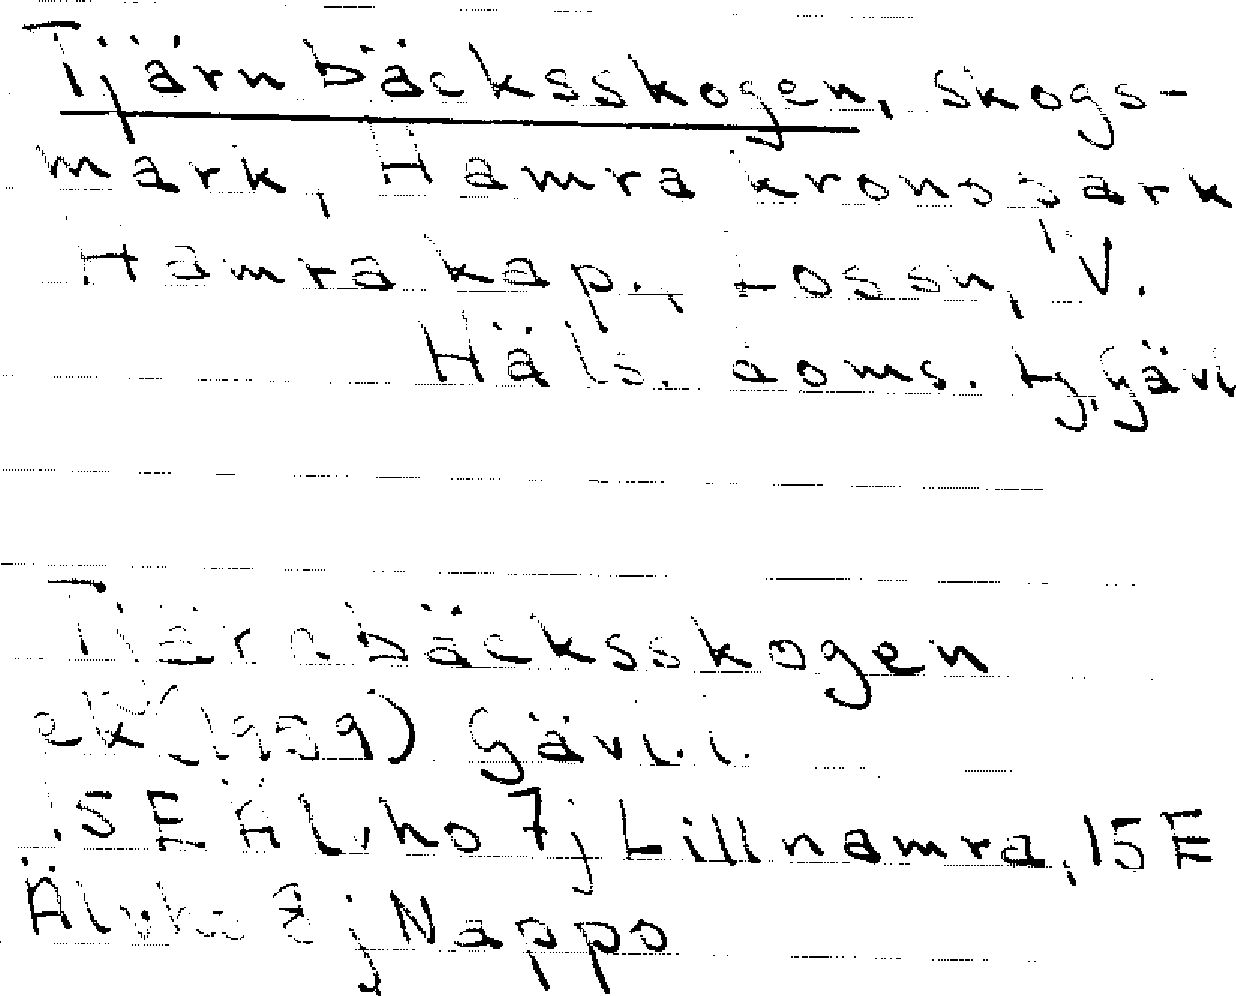 Tjärnbäcksskogen, skogs-
mark, Hamra kronopark
Hamra kap., Lossn, V.
Häls. doms. tg, Gävl
Tjärnbäcksskogen
ek (1959) Gävl.l.
15E Älvho 7j Lillhamra, 15E
Älvho 8j Nappo